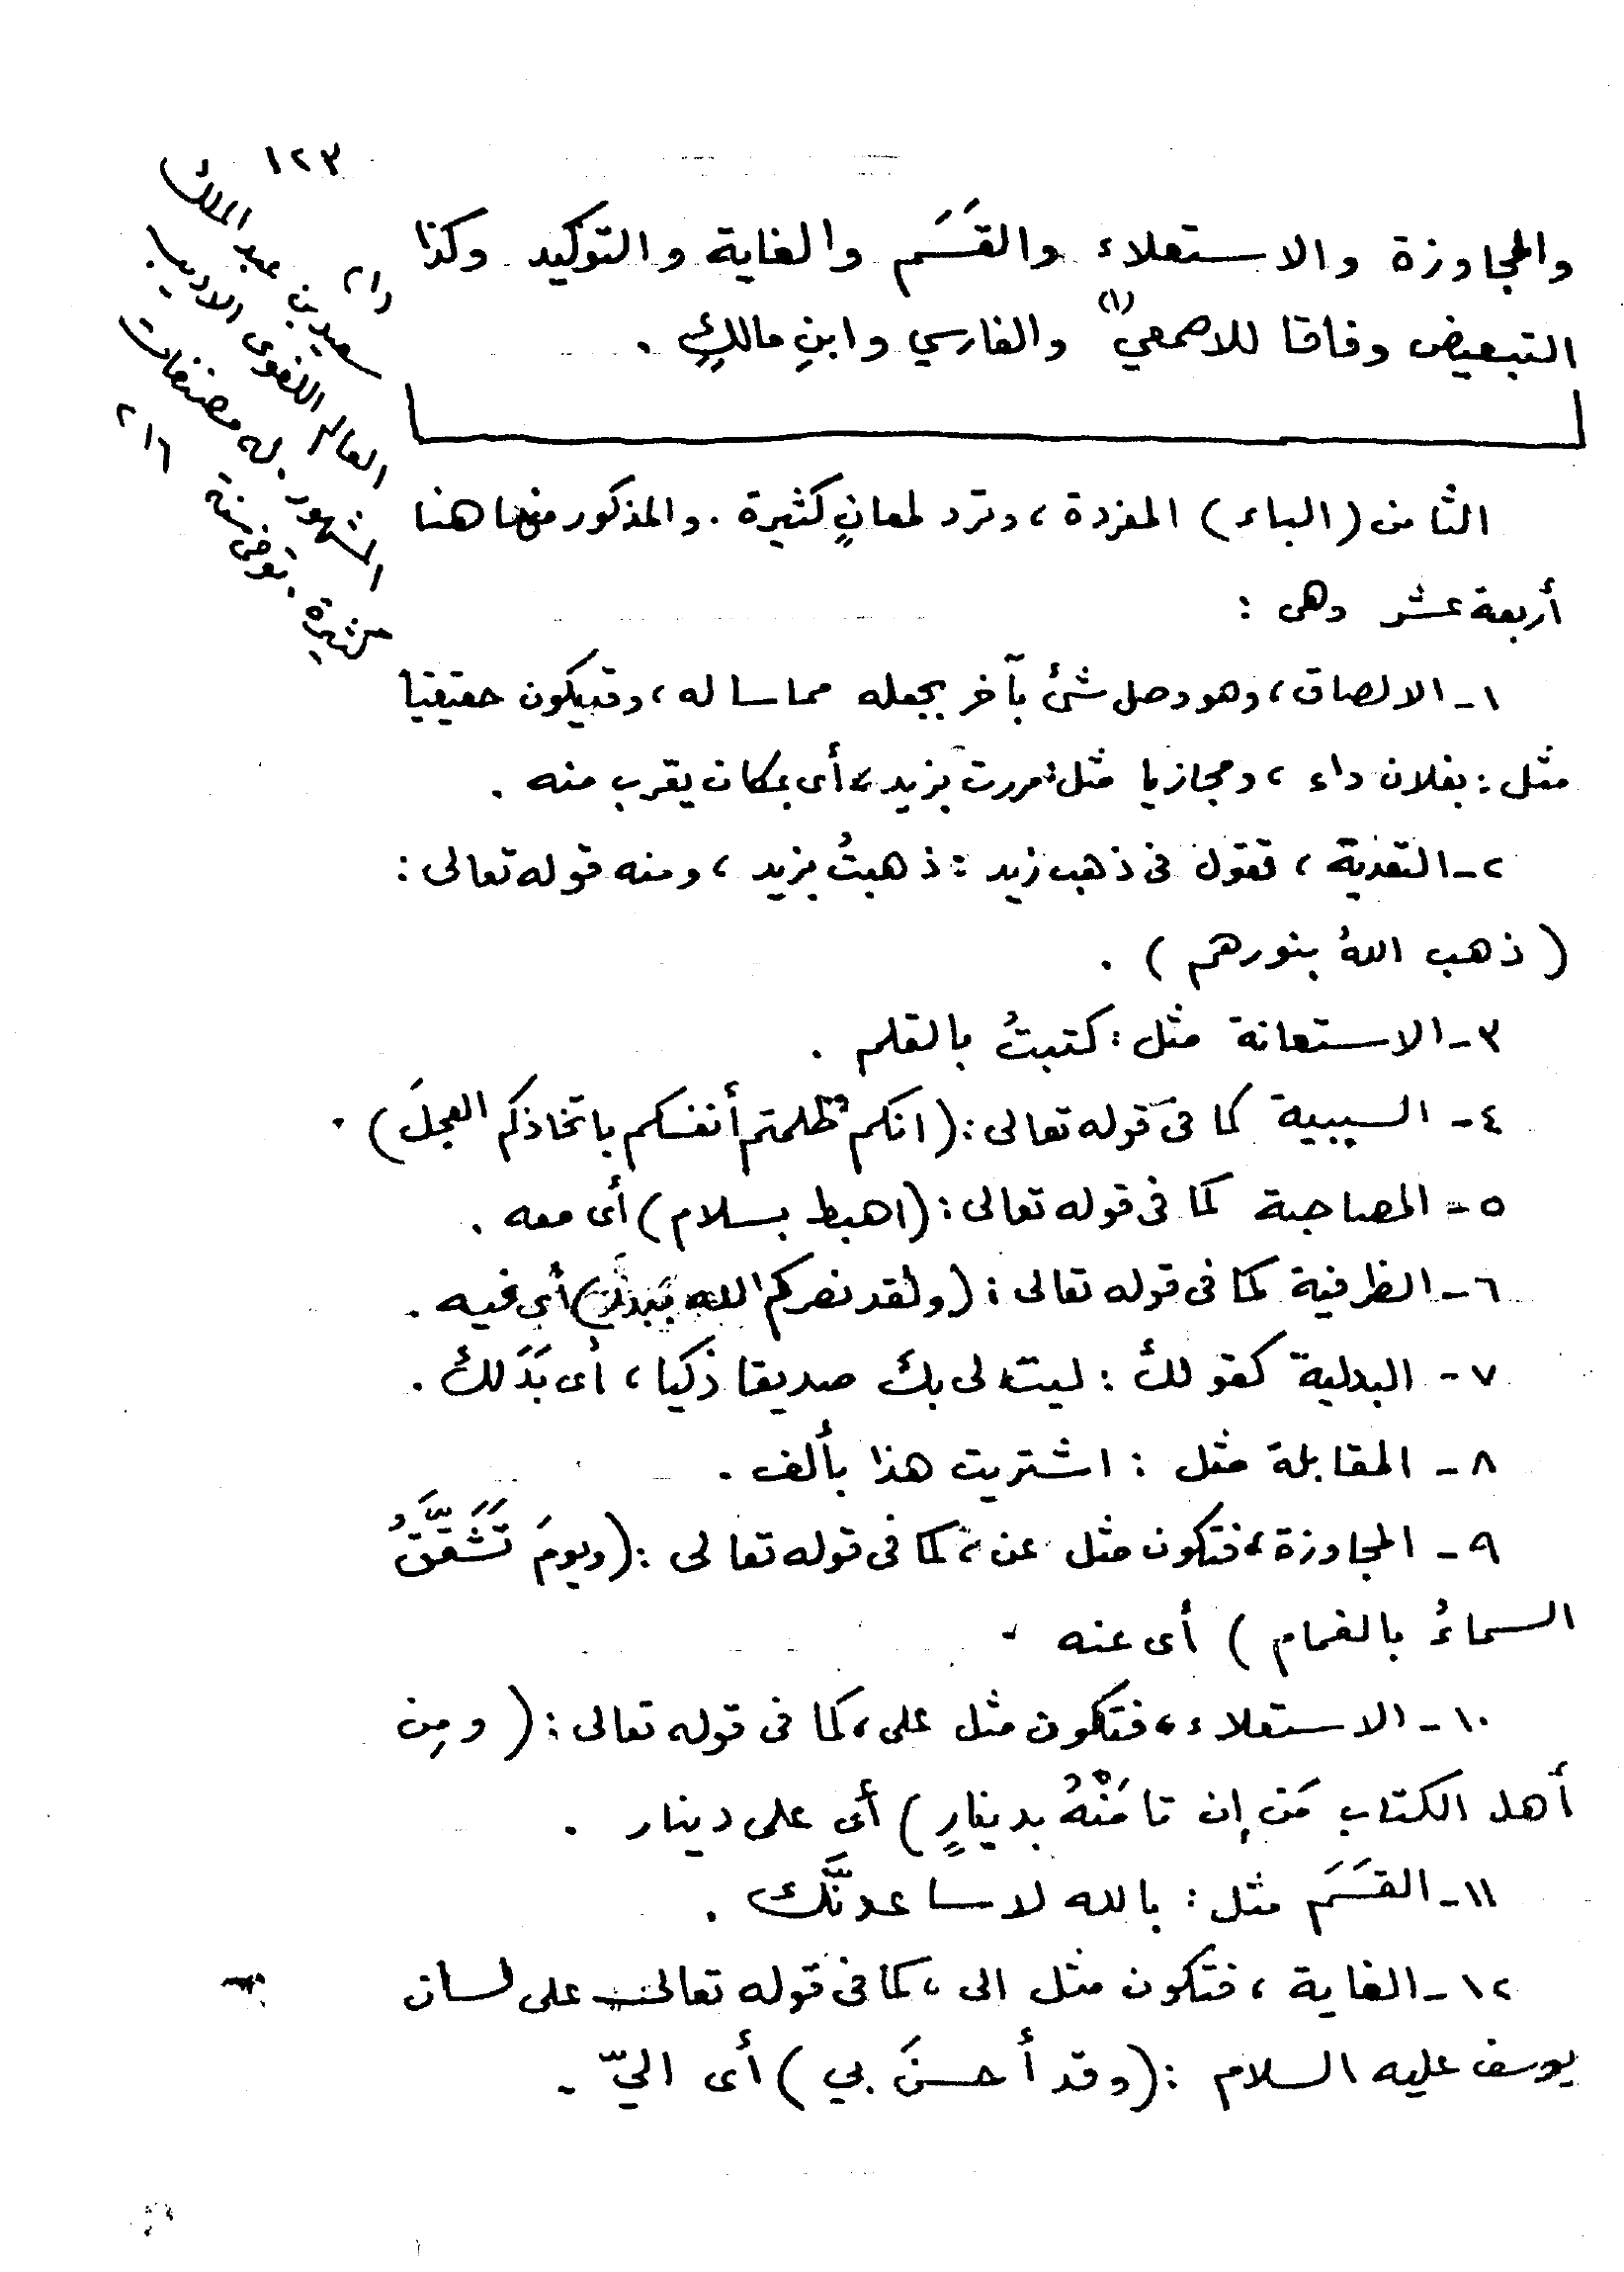 ١٢٣
والمجاوزة والاستعلاء والقَسَم والغاية والتوكيد وكذا
التبعيض وفاقا للاصمعي (١) والفارسي وابنِ مالكٍ .
الثامن (الباء) المفردة ، وترد لمعانٍ كثيرة . والمذكور منها هنا
أربعة عشر وهى :
١ - الالصاق ، وهو وصل شئ بآخر يجعله مماسا له ، وقد يكون حقيقيا
مثل : بفلان داء ، ومجازيا مثل : مررت بزيد ، أى بمكان يقرب منه .
٢ - التعدية ، فقول فى ذهب زيد : ذهبتُ بزيد ، ومنه قوله تعالى :
( ذهب اللهُ بنورهم ) .
٣ - الاستعانة مثل : كتبتُ بالقلم .
٤ - السببية كما فى قوله تعالى : (انكم ظلمتم أنفسكم باتخاذكم العجلَ) .
٥ - المصاحبة كما فى قوله تعالى : (اهبط بسلام) أى معه .
٦ - الظرفية كما فى قوله تعالى : (ولقد نصركم الله ببدر) أى فيه .
٧ - البدلية كقولك : ليت لى بك صديقا ذكيا ، أى بَدَلك .
٨ - المقابلة مثل : اشتريت هذا بألف .
٩ - المجاوزة ، فتكون مثل عن ، كما فى قوله تعالى : (ويومَ تَشَقَّقُ
السماءُ بالغمام ) أى عنه .
١٠ - الاستعلاء ، فتكون مثل على ، كما فى قوله تعالى : ( ومِن
أهل الكتاب مَن إن تامَنْهُ بدينارٍ ) أى على دينار .
١١ - القَسَم مثل : بالله لاساعدنَّك .
١٢ - الغاية ، فتكون مثل الى ، كما فى قوله تعالى على لسان
يوسف عليه السلام : (وقد أحسنَ بي ) أى اليّ .
(١)
سعيد بن عبد الملك
العالم اللغوى الاديب
المشهور . له مصنفات
كثيرة . توفى سنة ٢١٦